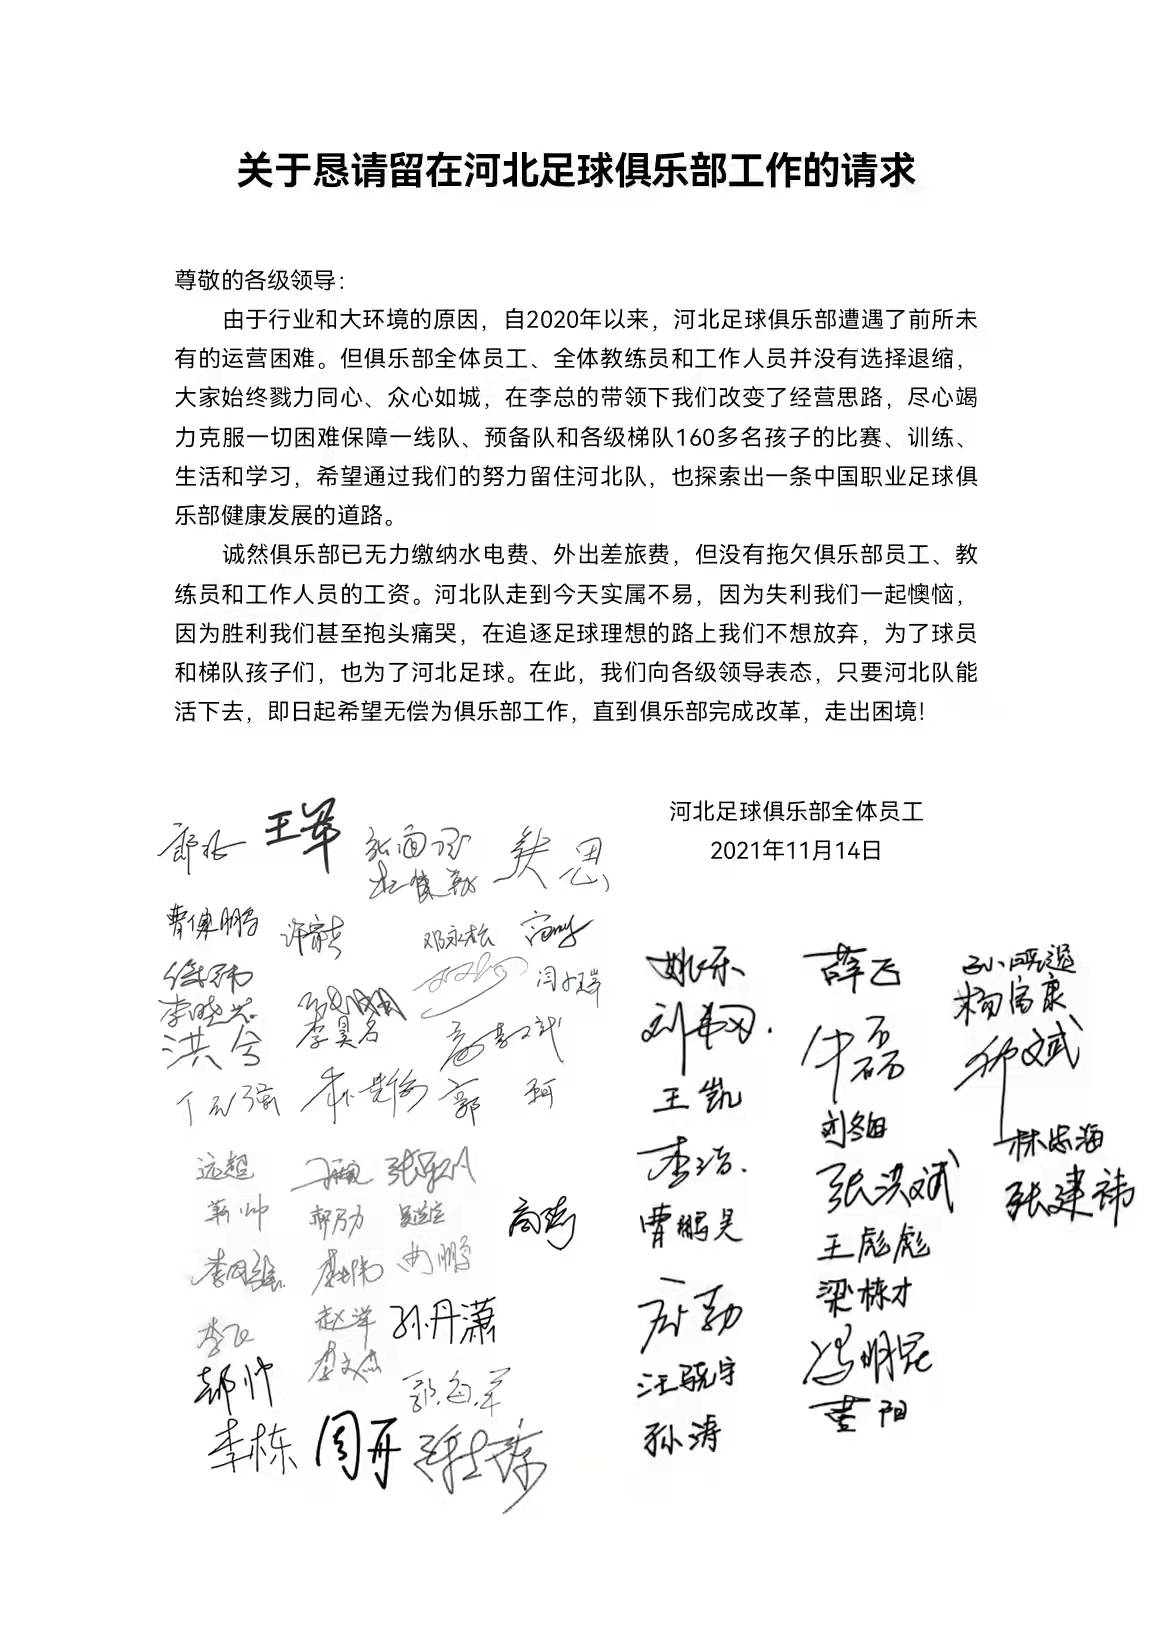 关于恳请留在河北足球俱乐部工作的请求
尊敬的各级领导：
由于行业和大环境的原因，自2020年以来，河北足球俱乐部遭遇了前所未
有的运营困难。但俱乐部全体员工、全体教练员和工作人员并没有选择退缩，
大家始终戮力同心、众心如城，在李总的带领下我们改变了经营思路，尽心竭
力克服一切困难保障一线队、预备队和各级梯队160多名孩子的比赛、训练、
生活和学习，希望通过我们的努力留住河北队，也探索出一条中国职业足球俱
乐部健康发展的道路。
诚然俱乐部已无力缴纳水电费、外出差旅费，但没有拖欠俱乐部员工、教
练员和工作人员的工资。河北队走到今天实属不易，因为失利我们一起懊恼，
因为胜利我们甚至抱头痛哭，在追逐足球理想的路上我们不想放弃，为了球员
和梯队孩子们，也为了河北足球。在此，我们向各级领导表态，只要河北队能
活下去，即日起希望无偿为俱乐部工作，直到俱乐部完成改革，走出困境！
河北足球俱乐部全体员工
2021年11月14日
王军
曹俊鹏
邓永松
李昊名
洪兮
郭
远超
李飞
赵洋
孙丹潇
李文杰
郝帅
李栋
周冉
姚乐
薛飞
杨富康
牛磊
王凯
林忠海
李浩
张洪斌
张建祎
曹鹏昊
王彪彪
梁栋才
汪骁宇
冯明昆
孙涛
董阳